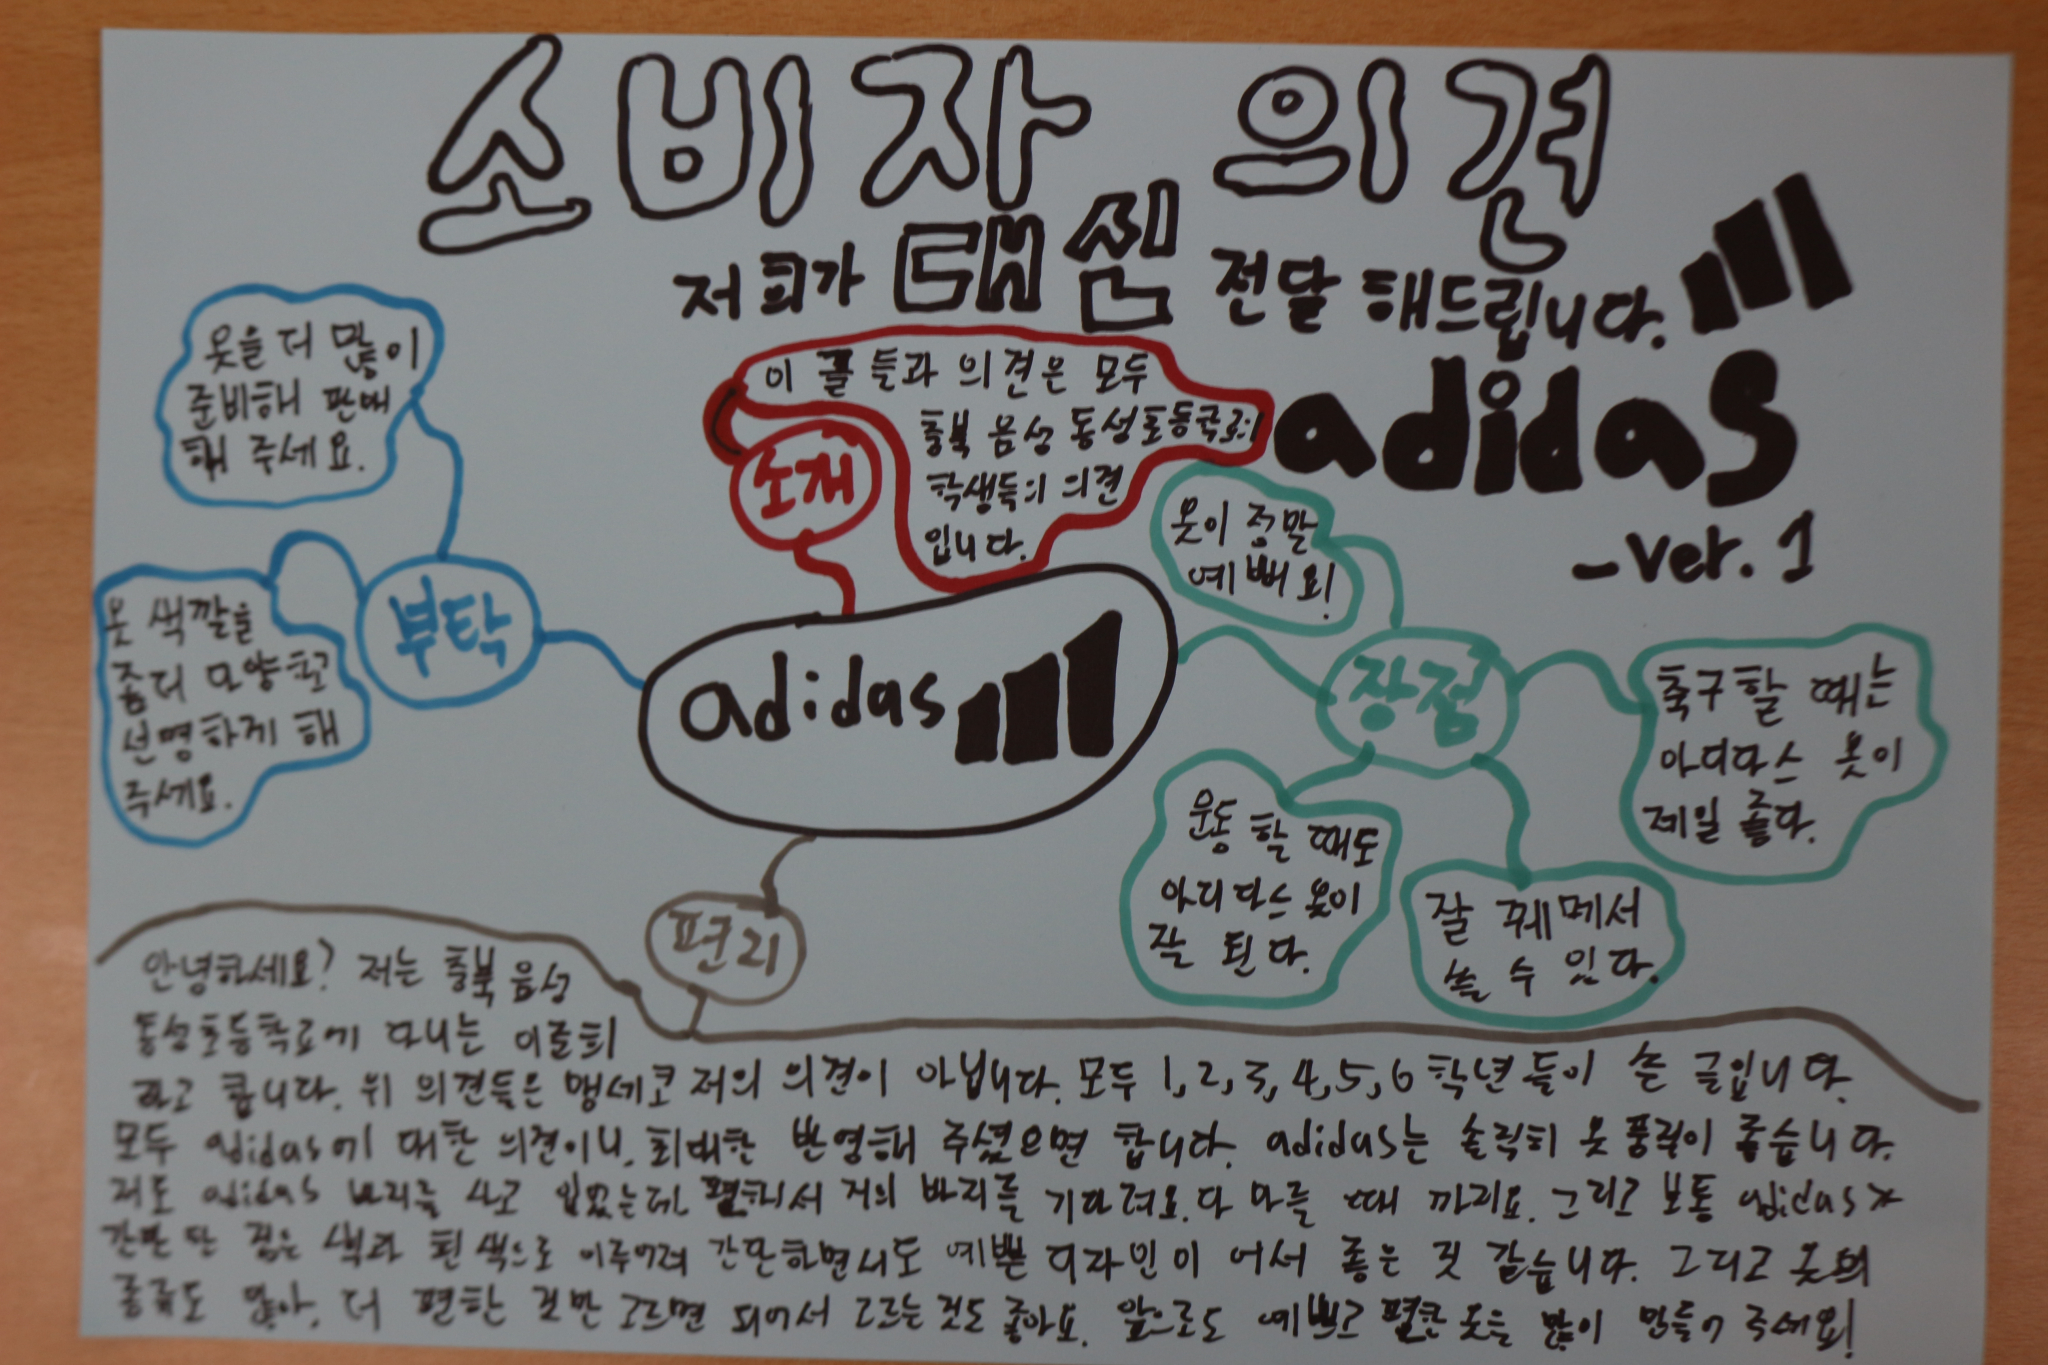 소비자 의견
저희가 대신 전달 해드립니다.
adidas
-ver. 1
옷을 더 많이
준비해 판매
해 주세요.
옷 색깔을
좀더 모양하고
선명하게 해
주세요.
부탁
소개
이 글들과 의견은 모두
충북 음성 동성초등학교
학생들의 의견
입니다.
adidas
옷이 정말
예뻐요!
장점
축구할 때는
아디다스 옷이
제일 좋다.
운동 할 때도
아디다스 옷이
잘 된다.
잘 꿰메서
쓸 수 있다.
편리
안녕하세요? 저는 충북 음성
동성초등학교에 다니는 이준희
라고 합니다. 위 의견들은 맹세코 저의 의견이 아닙니다. 모두 1, 2, 3, 4, 5, 6 학년들이 쓴 글입니다.
모두 adidas에 대한 의견이니, 최대한 반영해 주셨으면 합니다. adidas는 솔직히 옷 품질이 좋습니다.
저도 adidas 바지를 사고 입었는데, 편해서 거의 바지를 기다려요. 다 마를 때 까지요. 그리고 보통 adidas가
검은 색과 흰색으로 이루어져 간단하면서도 예쁜 디자인이 어서 좋은 것 같습니다. 그리고 옷의
종류도 많아, 더 편한 것만 고르면 되어서 고르는것도 좋아요. 앞으로도 예쁘고 편한 옷을 많이 만들어 주세요!